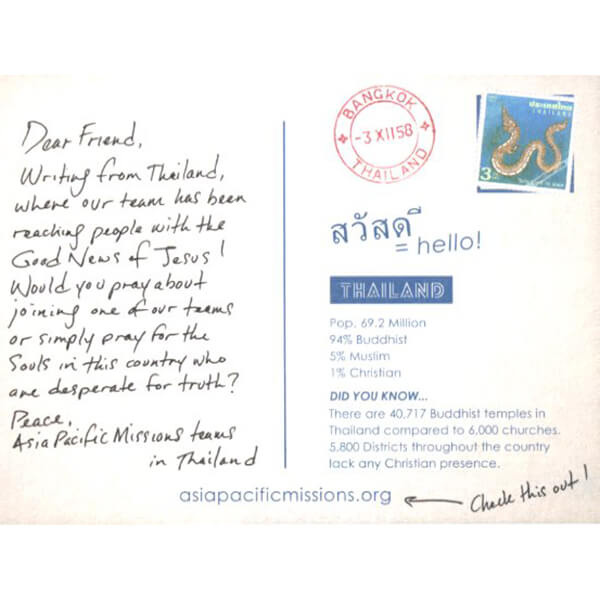 Dear Friend,
Writing from Thailand,
where our team has been
reaching people with the
Good News of Jesus!
Would you pray about
joining one of our teams
or simply pray for the
Souls in this country who
are desperate for truth?
Peace,
Asia Pacific Missions teams
in Thailand
BANGKOK
-3 XII 58
THAILAND
ประเทศไทย
THAILAND
3
สวัสดี
= hello!
THAILAND
Pop. 69.2 Million
94% Buddhist
5% Muslim
1% Christian
DID YOU KNOW...
There are 40,717 Buddhist temples in
Thailand compared to 6,000 churches.
5,800 Districts throughout the country
lack any Christian presence.
asiapacificmissions.org
Check this out!